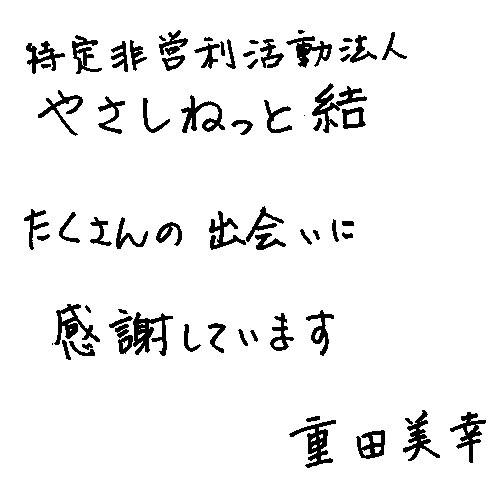 特定非営利活動法人
やさしねっと結
たくさんの出会いに
感謝しています
重田美幸